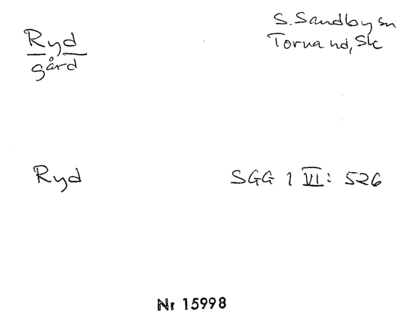 Ryd
gård
S. Sandby sn
Torna hd, Sk
Ryd
SGG 1 VI: 526
Nr 15998